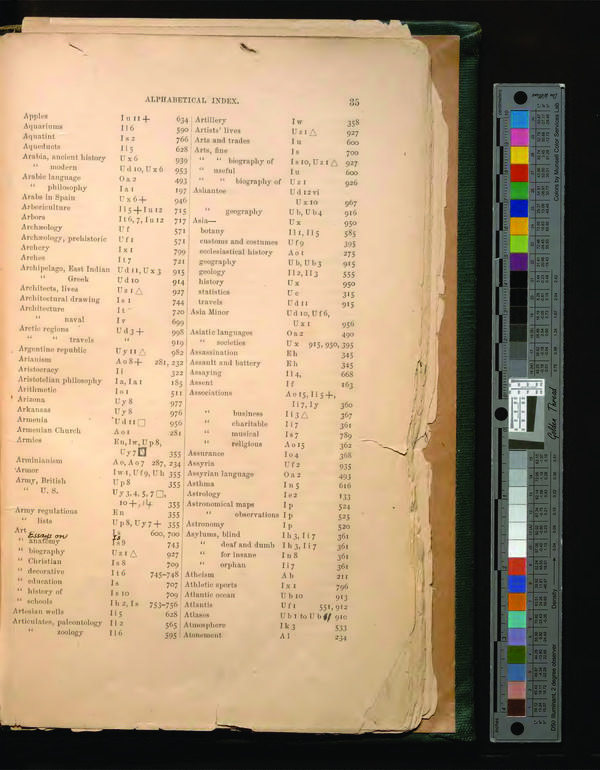 ALPHABETICAL INDEX. 35
Apples I u 11 + 634
Aquariums I l 6 590
Aquatint I s 2 766
Aqueducts I l 5 628
Arabia, ancient history U x 6 939
" modern U d 10, U x 6 953
Arabic language O a 2 493
" philosophy I a 1 197
Arabs in Spain U x 6 + 946
Arboriculture I l 5 + I u 12 715
Arbors I t 6, 7, I u 12 717
Archæology U f 571
Archæology, prehistoric U f 1 571
Archery I x 1 799
Arches I t 7 721
Archipelago, East Indian U d 11, U x 3 915
" Greek U d 10 914
Architects, lives U z 1 △ 927
Architectural drawing I s 1 744
Architecture I t 720
" naval I v 699
Arctic regions U d 3 + 998
" " travels " 919
Argentine republic U y 11 △ 982
Arianism A o 8 + 281, 232
Aristocracy I i 322
Aristotelian philosophy I a, I a 1 185
Arithmetic I o 1 511
Arizona U y 8 977
Arkansas U y 8 976
Armenia U d 11 □ 956
Armenian Church A o 1 281
Armies E n, I w, U p 8,
U y 7 355
Arminianism A o, A o 7 287, 234
Armor I w 1, U f 9, U h 355
Army, British U p 8 355
" U. S. U y 3, 4, 5, 7 □,
10 +, 14 355
Army regulations E n 355
" lists U p 8, U y 7 + 355
Art I s 600, 700
Essays on Is
" anatomy I s 9 743
" biography U z 1 △ 927
" Christian I s 8 709
" decorative I t 6 745-748
" education I s 707
" history of I s 10 709
" schools I h 2, I s 753-756
Artesian wells I l 5 628
Articulates, paleontology I l 2 565
" zoology I l 6 595
Artillery I w 358
Artists' lives U z 1 △ 927
Arts and trades I u 600
Arts, fine I s 700
" " biography of I s 10, U z 1 △ 927
" useful I u 600
" " biography of U z 1 926
Ashantee U d 12 vi
U x 10 967
" geography U b, U b 4 916
Asia— U x 950
botany I l 1, I l 5 585
customs and costumes U f 9 395
ecclesiastical history A o 1 275
geography U b, U b 3 915
geology I l 2, I l 3 555
history U x 950
statistics U c 315
travels U d 11 915
Asia Minor U d 10, U f 6,
U x 1 956
Asiatic languages O a 2 490
" societies U x 915, 950, 395
Assassination E h 345
Assault and battery E h 345
Assaying I l 4, 668
Assent I f 163
Associations A o 15, I i 5 +,
I i 7, I y 360
" business I i 3 △ 367
" charitable I i 7 361
" musical I s 7 789
" religious A o 15 362
Assurance I o 4 368
Assyria U f 2 935
Assyrian language O a 2 493
Asthma I n 5 616
Astrology I e 2 133
Astronomical maps I p 524
" observations I p 525
Astronomy I p 520
Asylums, blind I h 3, I i 7 361
" deaf and dumb I h 3, I i 7 361
" for insane I n 8 361
" orphan I i 7 361
Atheism A b 211
Athletic sports I x 1 796
Atlantic ocean U b 10 913
Atlantis U f 1 551, 912
Atlases U b 1 to U b 910
Atmosphere I k 3 533
Atonement A l 234
Golden Thread